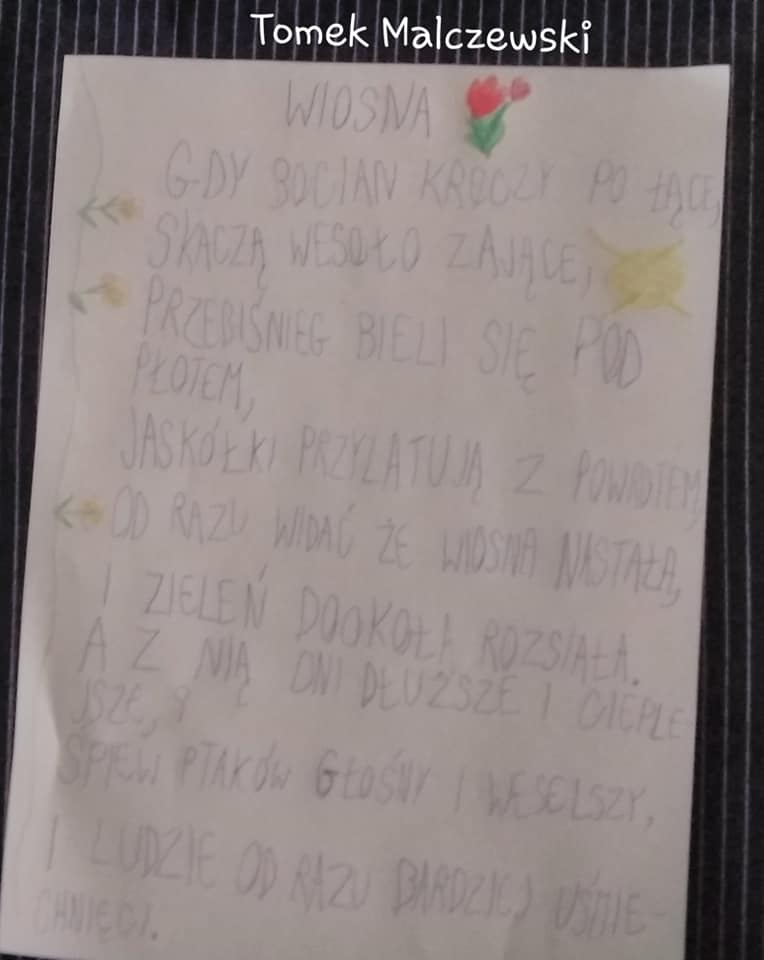 Tomek Malczewski
WIOSNA
GDY BOCIAN KROCZY PO ŁĄCE,
SKACZĄ WESOŁO ZAJĄCE,
PRZEBIŚNIEG BIELI SIĘ POD
PŁOTEM,
JASKÓŁKI PRZYLATUJĄ Z POWROTEM,
OD RAZU WIDAĆ ŻE WIOSNA NASTAŁA,
I ZIELEŃ DOOKOŁA ROZSIAŁA.
A Z NIĄ DNI DŁUŻSZE I CIEPLE-
JSZE,
ŚPIEW PTAKÓW GŁOŚNY I WESELSZY,
I LUDZIE OD RAZU BARDZIEJ UŚMIE-
CHNIĘCI.